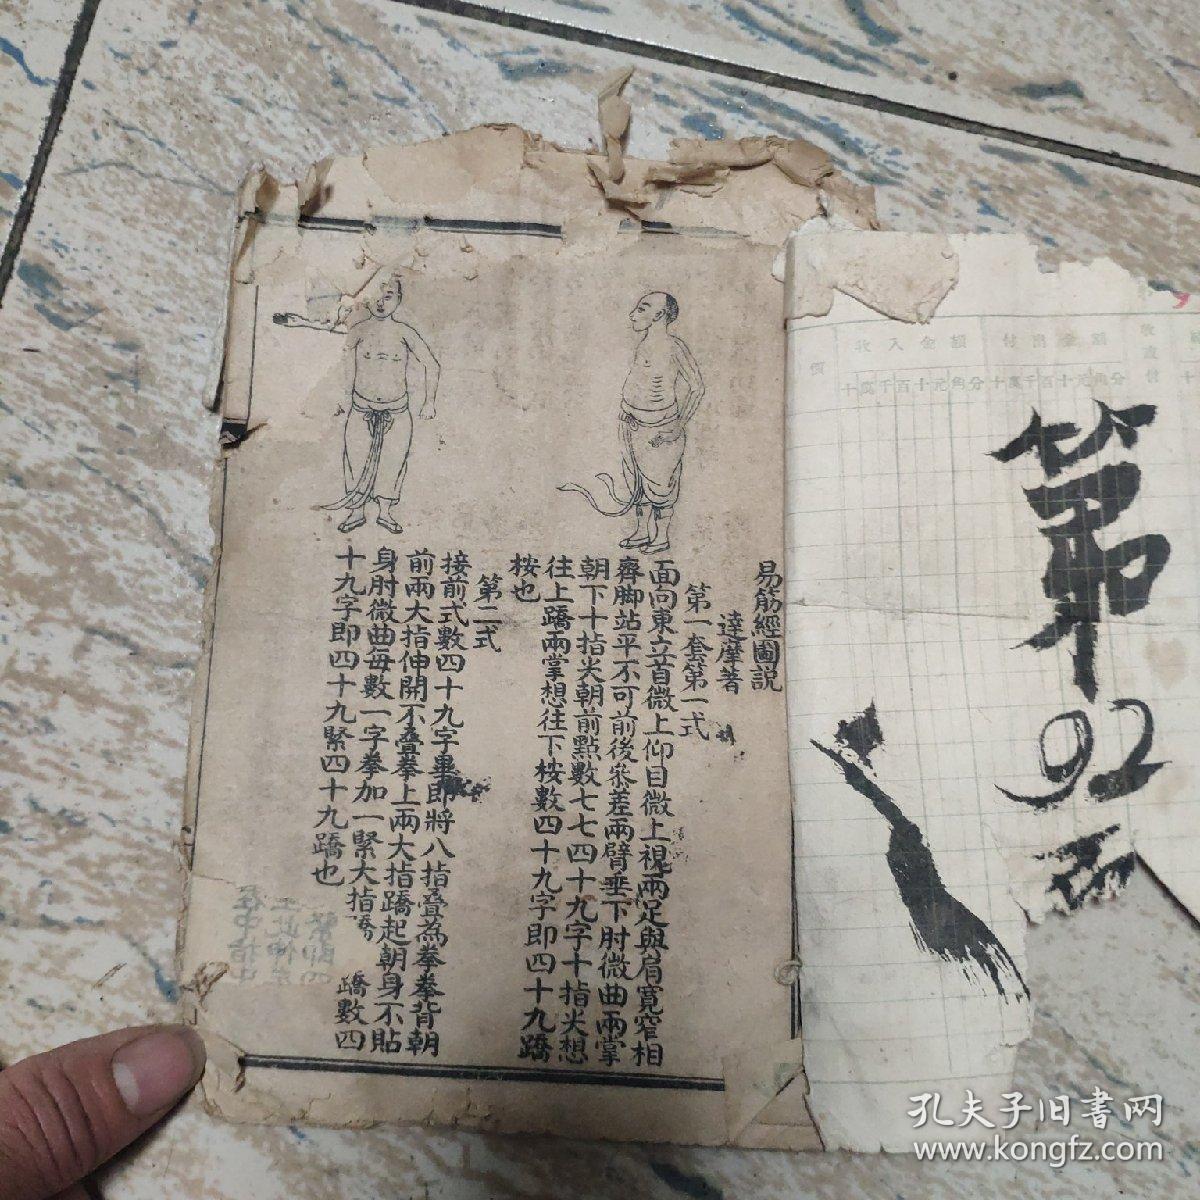 易筋經圖説
達摩著
第一套第一式
面向東立首微上仰目微上視兩足與肩寬窄相
齊脚站平不可前後叅差兩臂垂下肘微曲兩掌
朝下十指尖朝前點數七七四十九字十指尖想
往上蹻兩掌想往下桉數四十九字即四十九蹻
桉也
第二式
接前式數四十九字畢即將八指叠為拳拳背朝
前兩大指伸開不叠拳上兩大指蹻起朝身不貼
身肘微曲每數一字拳加一緊大指蹻 蹻數四
十九字即四十九緊四十九蹻也
收入金額
付出金額
十萬千百十元角分
十萬千百十元角分
第
92
孔夫子旧書网
www.kongfz.com